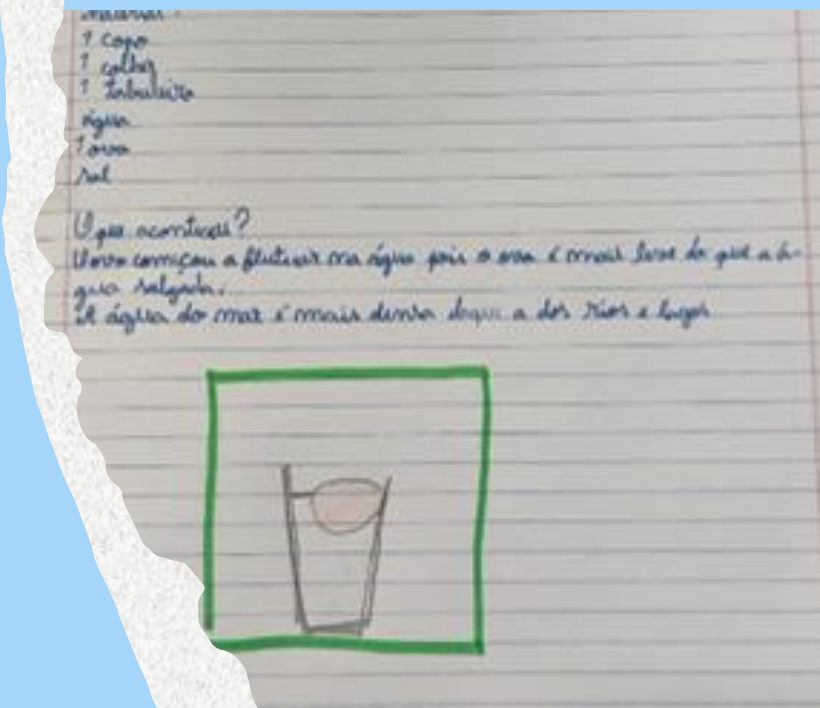 Material:
1 copo
1 colher
1 tabuleiro
água
1 ovo
sal
O que aconteceu?
O ovo começou a flutuar na água pois o ovo é mais leve do que a á-
gua salgada.
A água do mar é mais densa doqui a dos rios e lagos